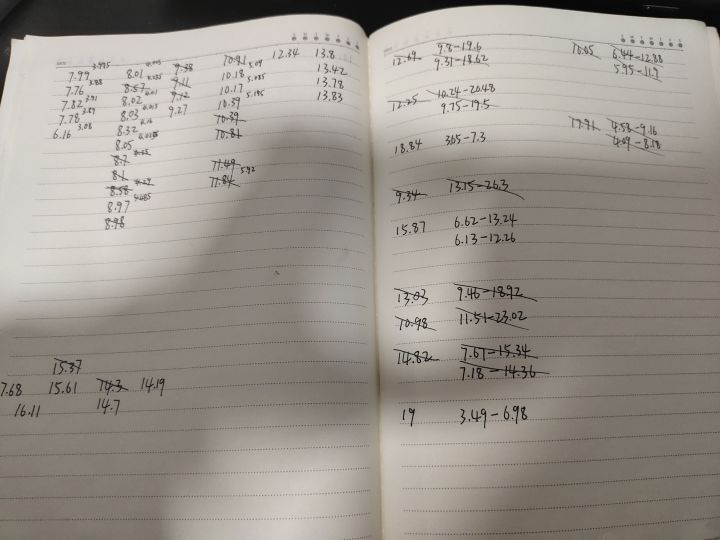 7.99 3.995 8.01 4.005 9.38 10.91 5.09 12.34 13.8
7.76 3.88 8.57 9.11 10.18 5.085 13.42
7.82 3.91 8.02 4.01 9.12 10.17 5.195 13.78
7.78 3.89 8.03 4.015 9.27 10.39 13.83
6.16 3.08 8.32 4.16 10.39
8.05 4.025 10.81
8.7
8.1 11.49
8.58 4.29 11.84 5.92
8.97 4.485
8.98
15.37
7.68 15.61 14.3 14.19
16.11 14.7
12.69 9.8-19.6 10.05 6.44-12.88
9.31-18.62 5.95-11.9
12.25 10.24-20.48
9.75-19.5 4.58-9.16
18.84 3.65-7.3 4.09-8.18
9.34 13.15-26.3
15.87 6.62-13.24
6.13-12.26
13.03 9.46-18.92
10.98 11.51-23.02
14.82 7.67-15.34
7.18-14.36
19 3.49-6.98